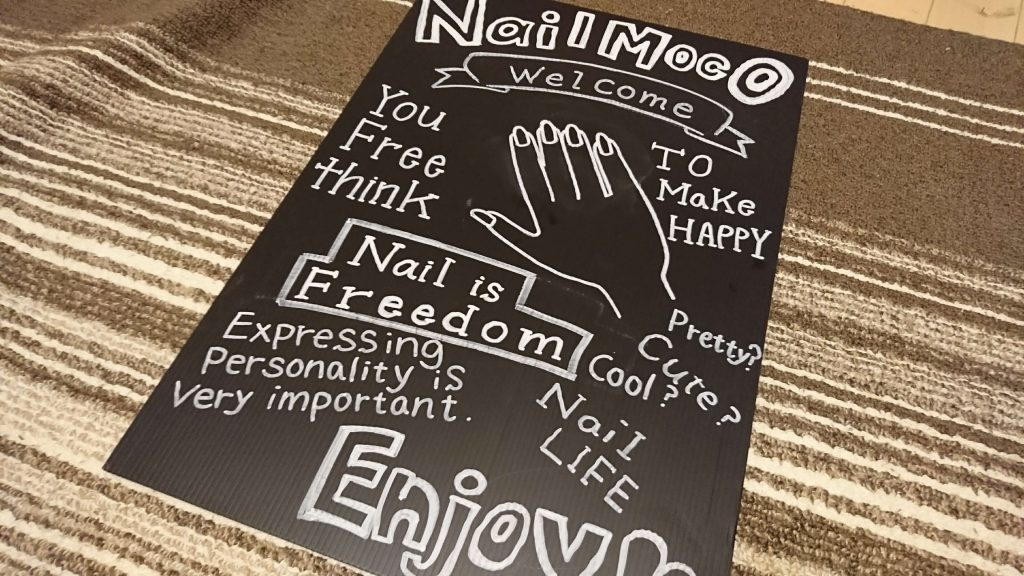 Nail MocO
Welcome
You
Free
think
TO
Make
HAPPY
Nail is
Freedom
Expressing
Personality is
Very important.
Pretty?
Cure?
Cool?
Nail
LIFE
Enjoy